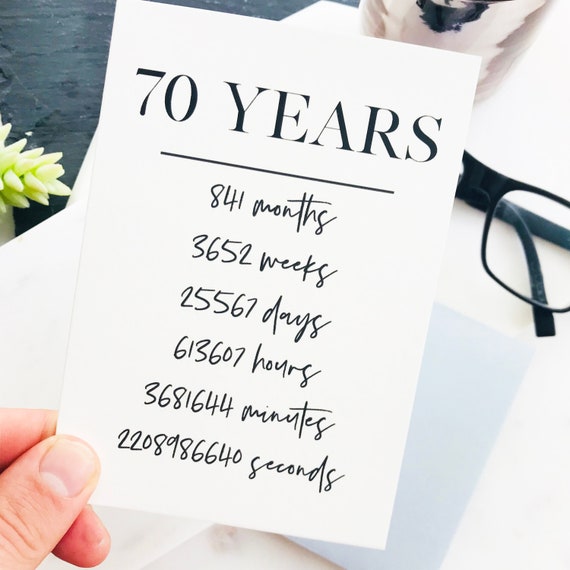 70 YEARS
841 months
3652 weeks
25567 days
613607 hours
3681644 minutes
2208986640 seconds